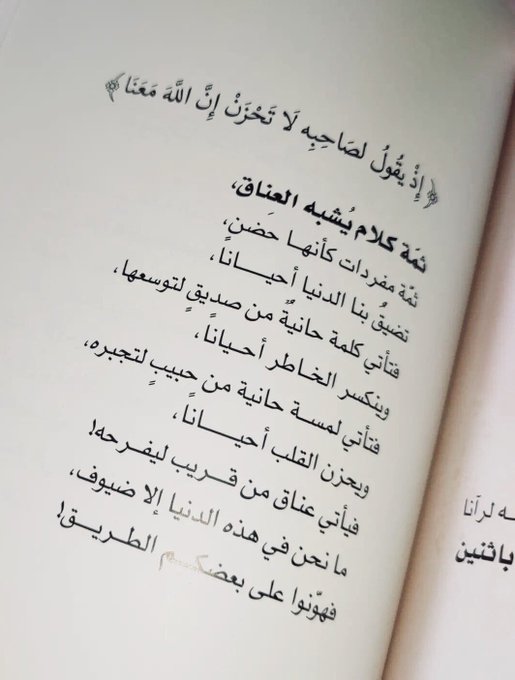 ﴿إِذْ يَقُولُ لِصَاحِبِهِ لَا تَحْزَنْ إِنَّ اللَّهَ مَعَنَا﴾
ثمّة كلام يُشبه العِناق،
ثمّة مفردات كأنها حضن،
تضيقُ بنا الدنيا أحيــــانًا،
فتأتي كلمة حانيةٌ من صديقٍ لتوسعها،
وينكسر الخاطر أحيــانًا،
فتأتي لمسة حانية من حبيبٍ لتجبره،
ويحزن القلب أحيــــانًا،
فيأتي عناق من قــريب ليفرحه!
ما نحن في هذه الدنيا إلا ضيوف،
فهوّنوا على بعضكــم الطريــق!
ـه لرآنا
باثنين